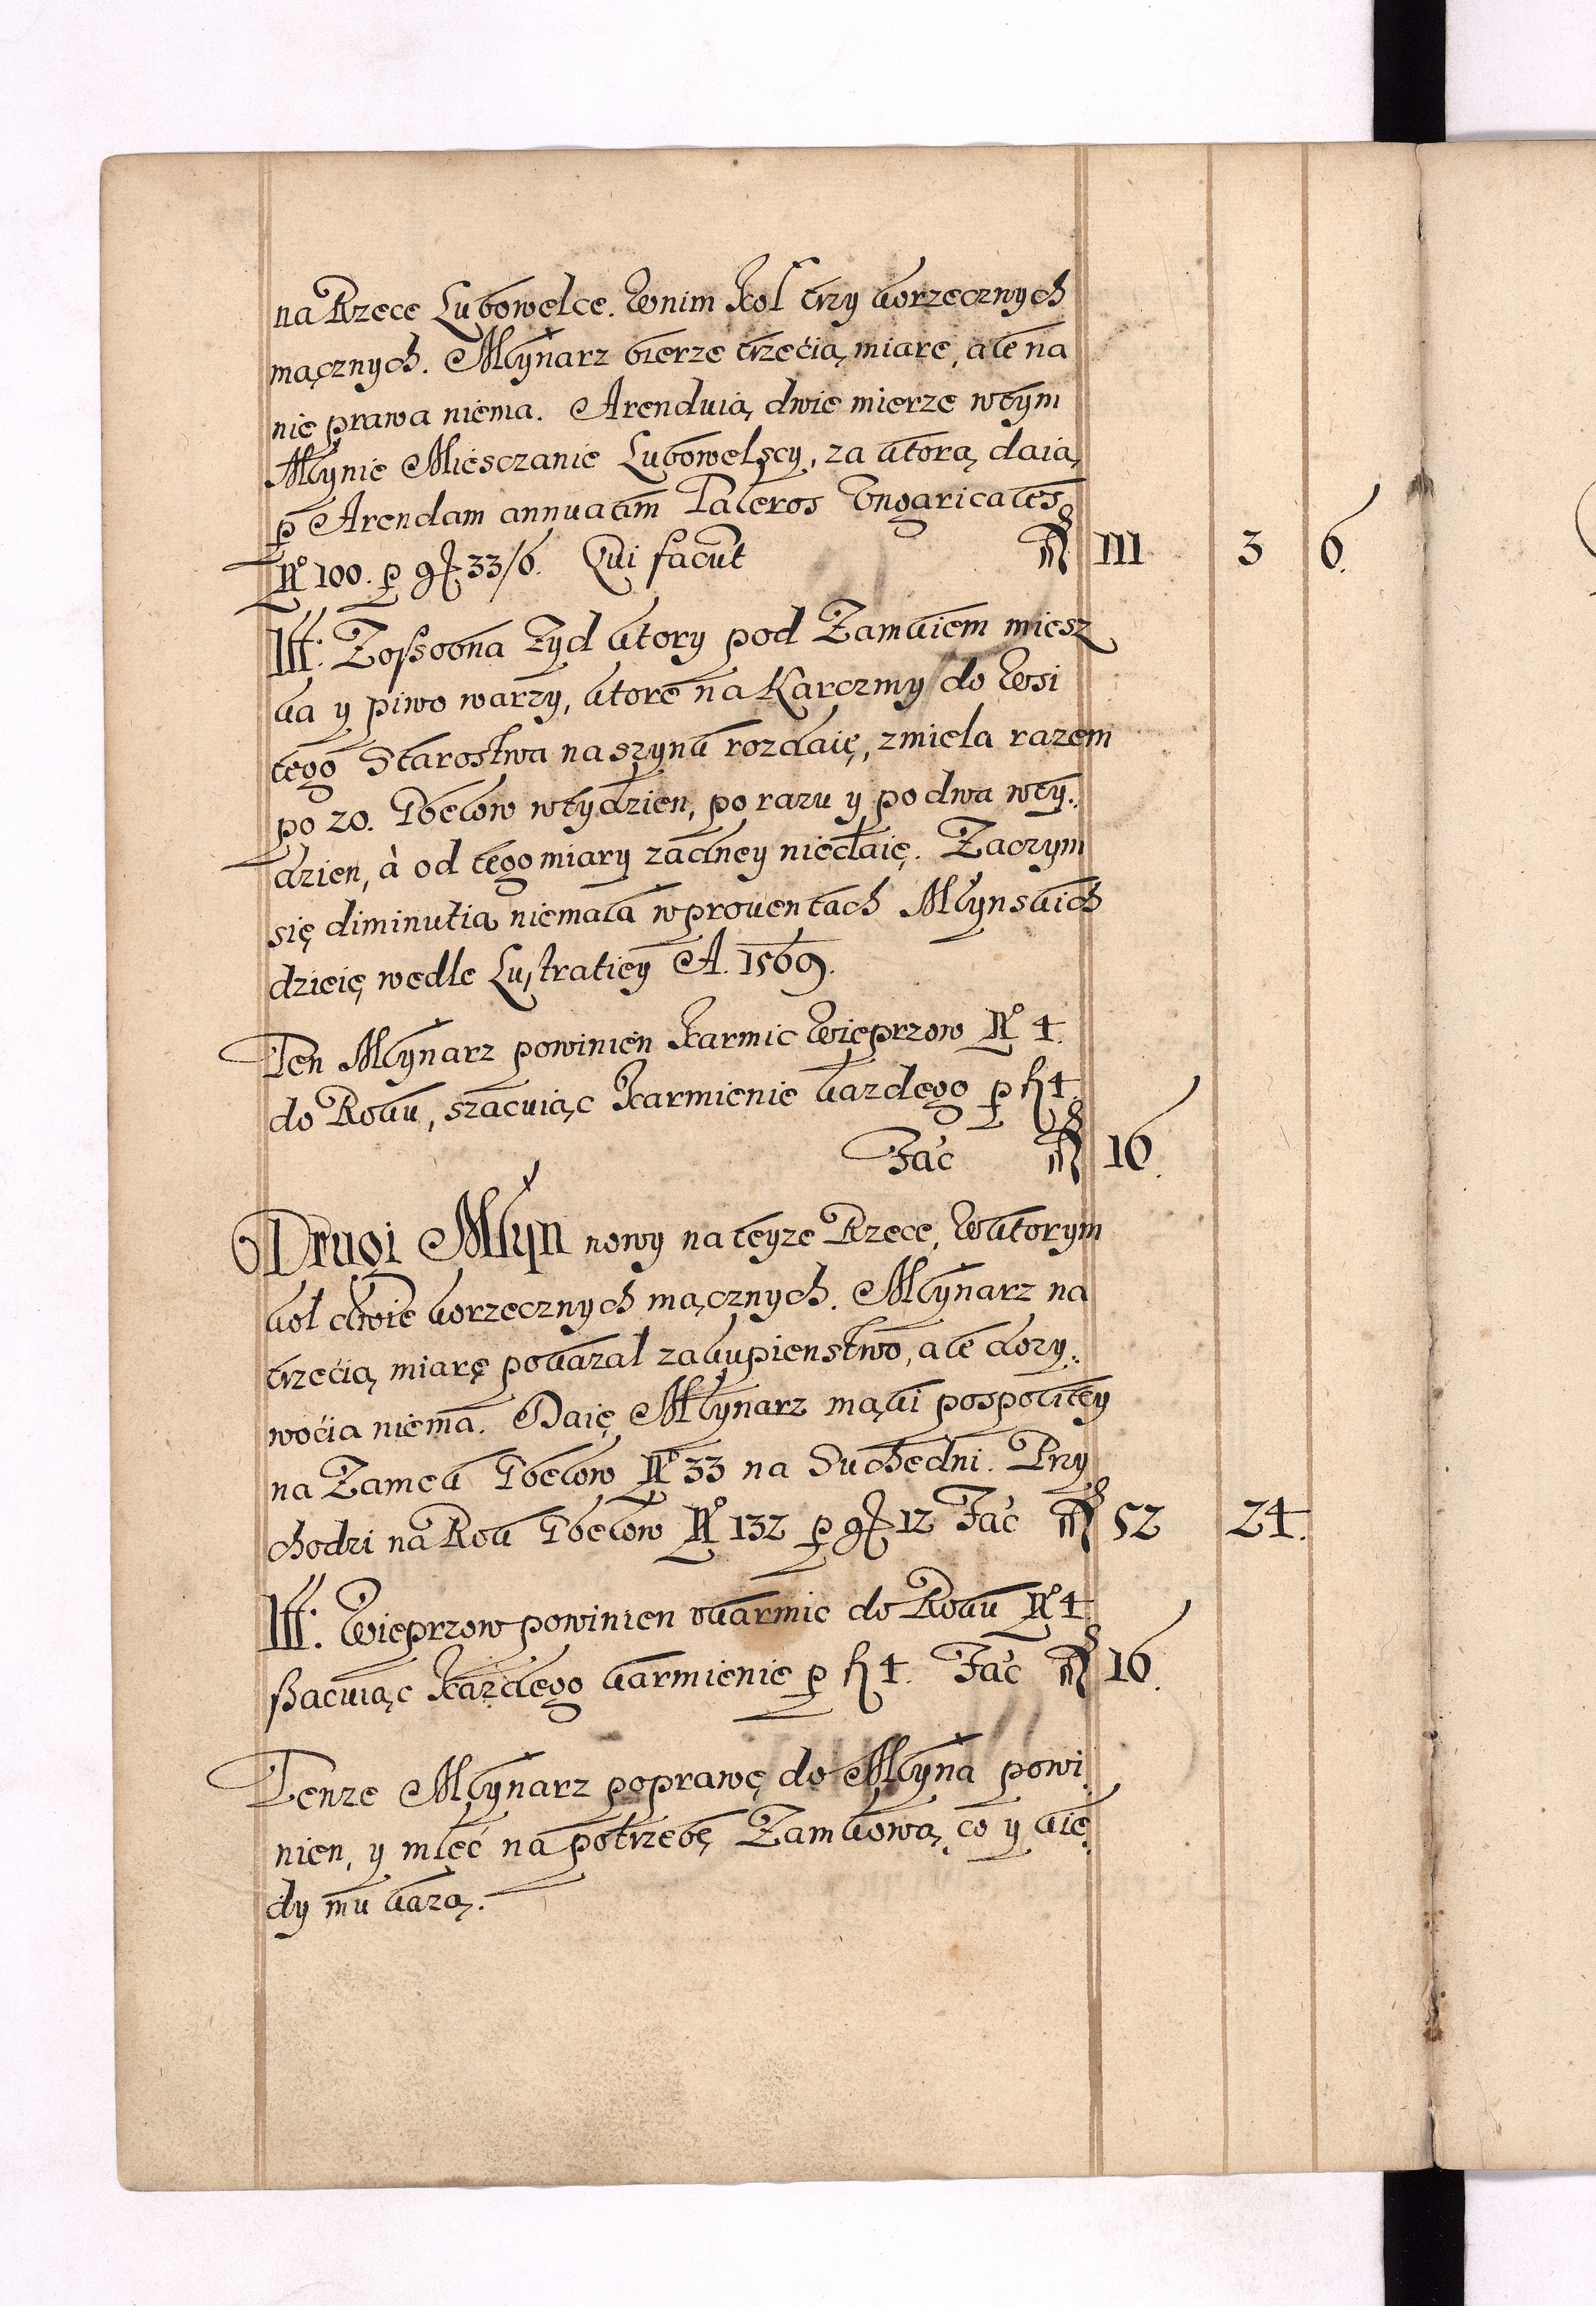 na Rzece Lubowelce. W nim Kol trzy korzecznych
mącznych. Młynarz bierze trzecią miarę, ale na
nię prawa niema. Arenduią dwie mierze w tym
Młynie Miesczanie Lubowelscy, za ktorą daią
p Arendam annuatim Taleros Vngaricales
No 100. p gr 33/6. Qui faciut fl 111 3 6.
Itt: Zossobna Zyd ktory pod Zamkiem miesz
ka y piwo warzy, ktore na Karczmy do Wsi
tego Starostwa na szynk rozdaię, zmiela razem
po 20. Gbelow w tydzien, po razu y po dwa w ty:
dzien, à od tego miary zadney niedaię. Zaczym
się diminutia niemała w prouentach Młynskich
dzieię wedle Lustratiey A. 1569.
Ten Młynarz powinien Karmic Wieprzow No 4.
do Roku, szacuiąc Karmienie kazdego p fl 4.
Fac fl 16.
Drugi Młyn nowy na teyze Rzece, W ktorym
koł dwie korzecznych mącznych. Młynarz na
trzecią miarę pokazał zakupienstwo, ale dozy:
wocia niema. Daię Młynarz mąki pospolitey
na Zamek Gbelow No 33 na Suchedni. Przy
chodzi na Rok Gbelow No 132 p gr 12 Fac fl 52 24.
Itt: Wieprzow powinien ukarmic do Roku No 4
szacuiąc Kazdego karmienie p fl 4. Fac fl 16.
Tenze Młynarz poprawę do Młyna powi:
nien, y mleć na potrzebę Zamkową, co y kie:
dy mu kazą.